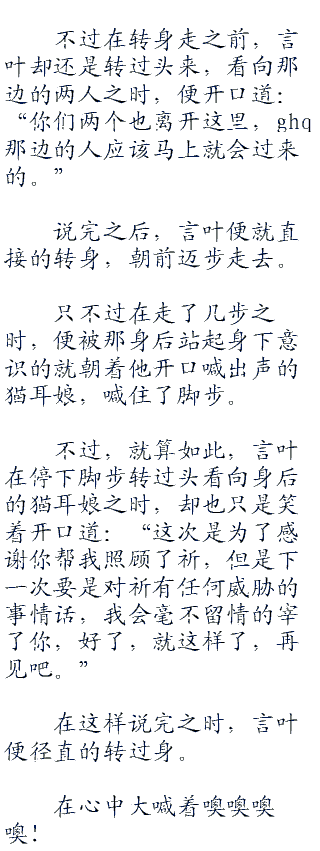 不过在转身走之前，言
叶却还是转过头来，看向那
边的两人之时，便开口道：
“你们两个也离开这里，ghq
那边的人应该马上就会过来
的。”
说完之后，言叶便就直
接的转身，朝前迈步走去。
只不过在走了几步之
时，便被那身后站起身下意
识的就朝着他开口喊出声的
猫耳娘，喊住了脚步。
不过，就算如此，言叶
在停下脚步转过头看向身后
的猫耳娘之时，却也只是笑
着开口道：“这次是为了感
谢你帮我照顾了祈，但是下
一次要是对祈有任何威胁的
事情话，我会毫不留情的宰
了你，好了，就这样了，再
见吧。”
在这样说完之时，言叶
便径直的转过身。
在心中大喊着噢噢噢
噢！